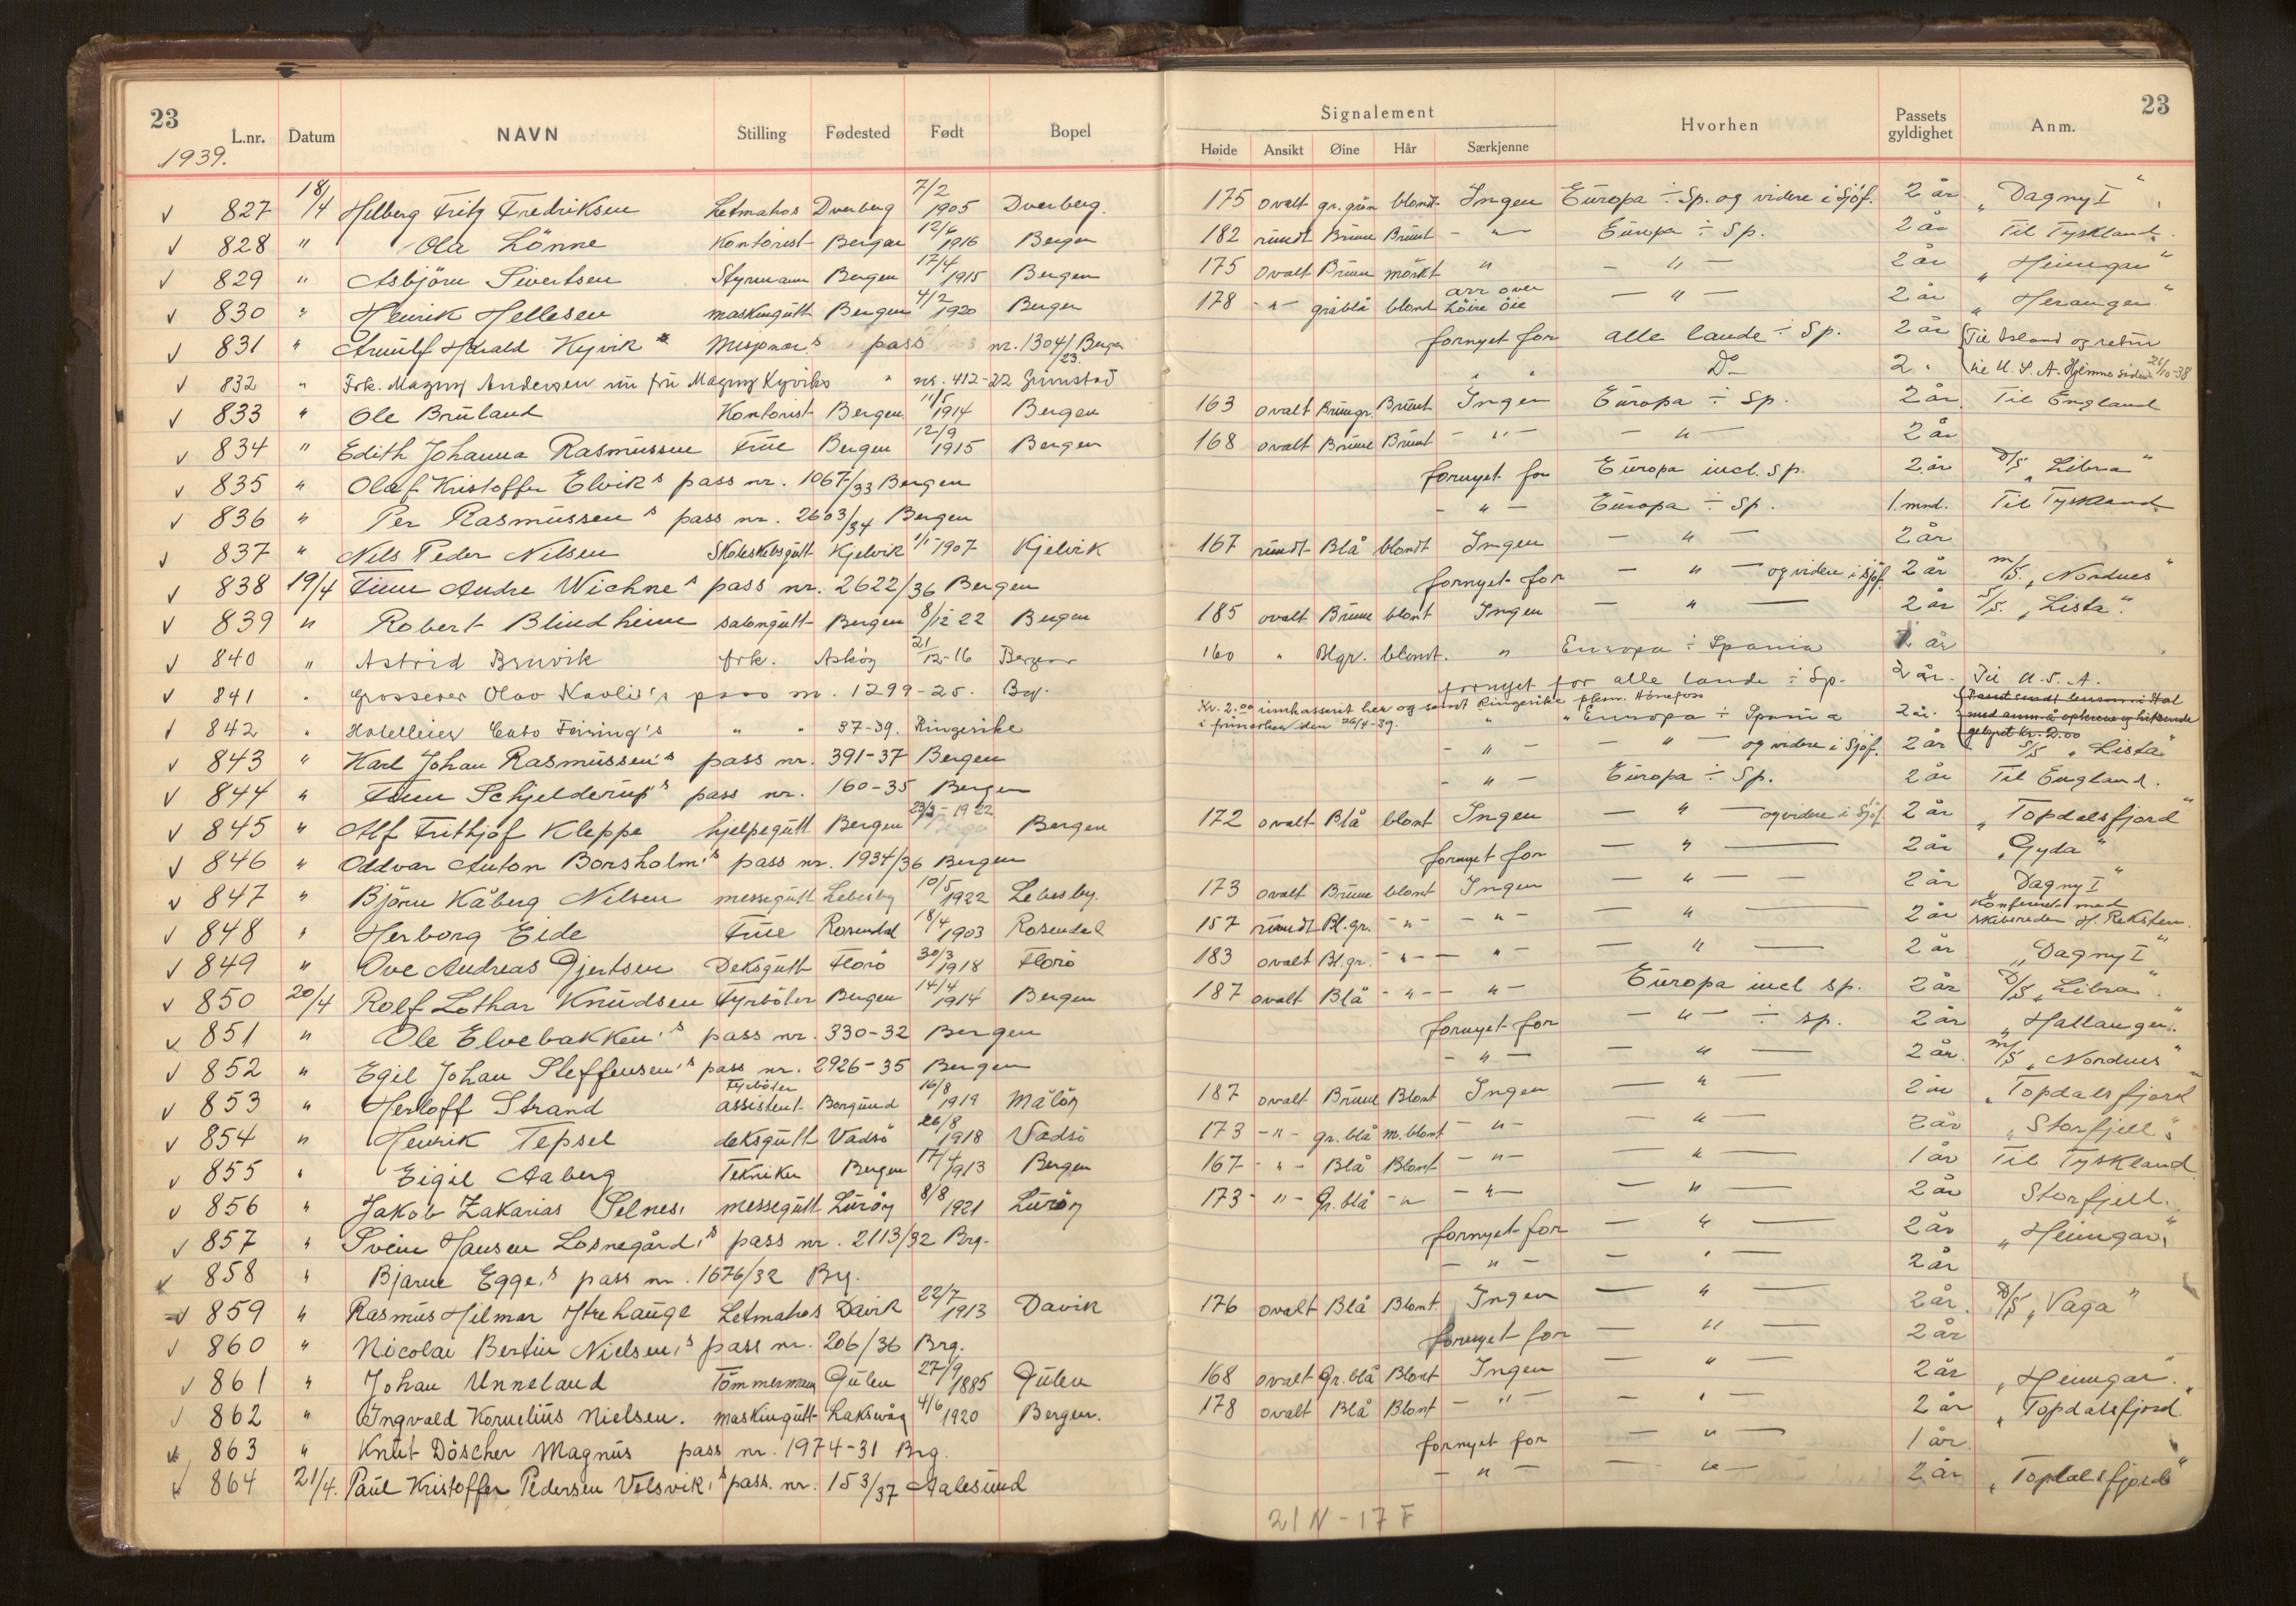 23
1939.
L.nr. Datum NAVN Stilling Fødested Født Bopel
Signalement
Høide Ansikt Øine Hår Særkjenne Hvorhen Passets gyldighet Anm.
23
827 18/4 Helberg Fritz Fredriksen Letmatros Dverberg 7/2 1905 Dverberg. 175 ovalt gr.grön blondt Ingen Europa ÷ Sp. og videre i Sjöf. 2 år „Dagny I"
828 " Ola Lönne Kontorist Bergen 12/6 1916 Bergen 182 rundt Brune Brunt - " - Europa ÷ Sp. 2 år Til Tyskland.
829 " Asbjörn Sivertsen Styrmann Bergen 17/4 1915 Bergen 175 ovalt Brune mörkt " - " - 2 år „Heimgar"
830 " Henrik Hellesen maskingutt Bergen 4/2 1920 Bergen 178 - " - gråblå blond arr over höire öie - " - 2 år „Heranger"
831 " Arnulf Harald Kyvik Misjonær's pass nr. 1304/23 Bergen fornyet for alle lande ÷ Sp. 2 år Til Island og retur
832 " Frk. Magny Andersen nu fru Magny Kyviks " nr. 412-22 Grimstad " " Do 2 " til U.S.A. Hjemme siden 26/10-38
833 " Ole Bruland Kontorist Bergen 11/5 1914 Bergen 163 ovalt Brungr. Brunt Ingen Europa ÷ Sp. 2 år. Til England
834 " Edith Johanna Rasmussen Frue Bergen 12/9 1915 Bergen 168 ovalt Brune Brunt - " - - " - 2 år
835 " Olaf Kristoffer Elvik's pass nr. 1067/33 Bergen fornyet for Europa incl. Sp. 2 år D/S „Libra"
836 " Per Rasmussen's pass nr. 2603/34 Bergen - " - Europa ÷ Sp. 1 mnd. Til Tyskland
837 " Nils Peder Nilsen Skoleskibsgutt Kjelvik 1/1-1907 Kjelvik 167 rundt Blå blondt Ingen - " - 2 år
838 19/4 Finn Andre Wichne's pass nr. 2622/36 Bergen fornyet for - " - og videre i Sjöf. 2 år m/S. „Nordnes"
839 " Robert Blindheim salongutt Bergen 8/12 22 Bergen 185 ovalt Brune blont Ingen - " - 2 år S/S. „Lista".
840 " Astrid Bruvik frk. Askøy 21/12-16 Bergen 160 " Blgr. blondt. " Europa ÷ Spania 2 år
841 " Grosserer Olav Kavli's pass nr. 1299-25. Bg. fornyet for alle lande ÷ Sp. 2 år. Til U.S.A.
842 " Hotelleier Cato Feiring's " " 37-39. Ringerike Kr. 2.00 innkasserit her og sendt Ringerike plkm. Hönefoss i frimerker den 26/4-39. " " Europa ÷ Spania 2 år.
843 " Karl Johan Rasmussen's pass nr. 391-37 Bergen - " - - " - og videre i Sjöf. 2 år S/S „Lista"
844 " Finn Schjelderup's pass nr. 160-35 Bergen - " - Europa ÷ Sp. 2 år Til England.
845 " Alf Frithjof Kleppe hjelpegutt Bergen 23/3-1922 Bergen 172 ovalt Blå blont Ingen - " - og videre i Sjöf. 2 år „Topdalsfjord"
846 " Oddvar Anton Borsholm's pass nr. 1934/36 Bergen fornyet for - " - 2 år „Gyda"
847 " Björn Kåberg Nilsen messegutt Lebesby 10/5 1922 Lebesby. 173 ovalt Brune blont Ingen - " - 2 år „Dagny I"
848 " Herborg Eide Frue Rosendal 18/4 1903 Rosendal 157 rundt Bl.gr. - " - - " - - " - 2 år Konferert med skibsreder H. Reksten.
849 " Ove Andreas Gjertsen Deksgutt Florö 30/3 1918 Florö 183 ovalt Bl.gr. - " - - " - - " - 2 år „Dagny I"
850 20/4 Rolf Lothar Knudsen Fyrböter Bergen 14/4 1914 Bergen 187 ovalt Blå - " - - " - Europa incl Sp. 2 år D/S „Libra".
851 " Ole Elvebakken's pass nr. 330-32 Bergen fornyet for - " - ÷ Sp. 2 år „Hallanger".
852 " Egil Johan Steffensen's pass nr. 2926-35 Bergen - " - - " - 2 år. m/S „Nordnes"
853 " Herloff Strand Fyrböter assistent Borgund 16/8 1919 Målöy 187 ovalt Brune Blont Ingen - " - 2 år „Topdalsfjord"
854 " Henrik Tepsel deksgutt Vadsö 26/8 1918 Vadsö 173 - " - gr.blå m.blont - " - - " - 2 år „Storfjell".
855 " Eigil Aaberg Tekniker Bergen 17/4 1913 Bergen 167 - " - Blå Blont - " - - " - 1 år Til Tyskland
856 " Jakob Zakarias Selnes, messegutt Luröy 8/8 1921 Luröy 173 - " - Gr.blå - " - " - - " - 2 år Storfjell.
857 " Svein Hansen Losnegård's pass nr. 2113/32 Brg. fornyet for - " - 2 år „Heimgar"
858 " Bjarne Egge's pass nr. 1676/32 Brg. - " - - " - 2 år
859 " Rasmus Hilmar Ytrehauge Letmatros Davik 22/7 1913 Davik 176 ovalt Blå Blont Ingen - " - 2 år. D/S „Vaga"
860 " Nicolai Bertin Nielsen's pass nr. 206/36 Brg. fornyet for - " - 2 år
861 " Johan Unneland Tömmermann Gulen 27/9 1885 Gulen 168 ovalt Gr.blå Blont Ingen - " - 2 år „Heimgar".
862 " Ingvald Kornelius Nielsen. maskingutt Laksevåg 4/6 1920 Bergen. 178 ovalt Blå Blont - " - - " - 2 år „Topdalsfjord".
863 " Knut Döscher Magnus pass nr. 1974-31 Brg. fornyet for - " - 1 år.
864 21/4. Paul Kristoffer Pedersen Velsvik's pass. nr. 153/37 Aalesund - " - - " - 2 år „Topdalsfjord"
21 N - 17 F